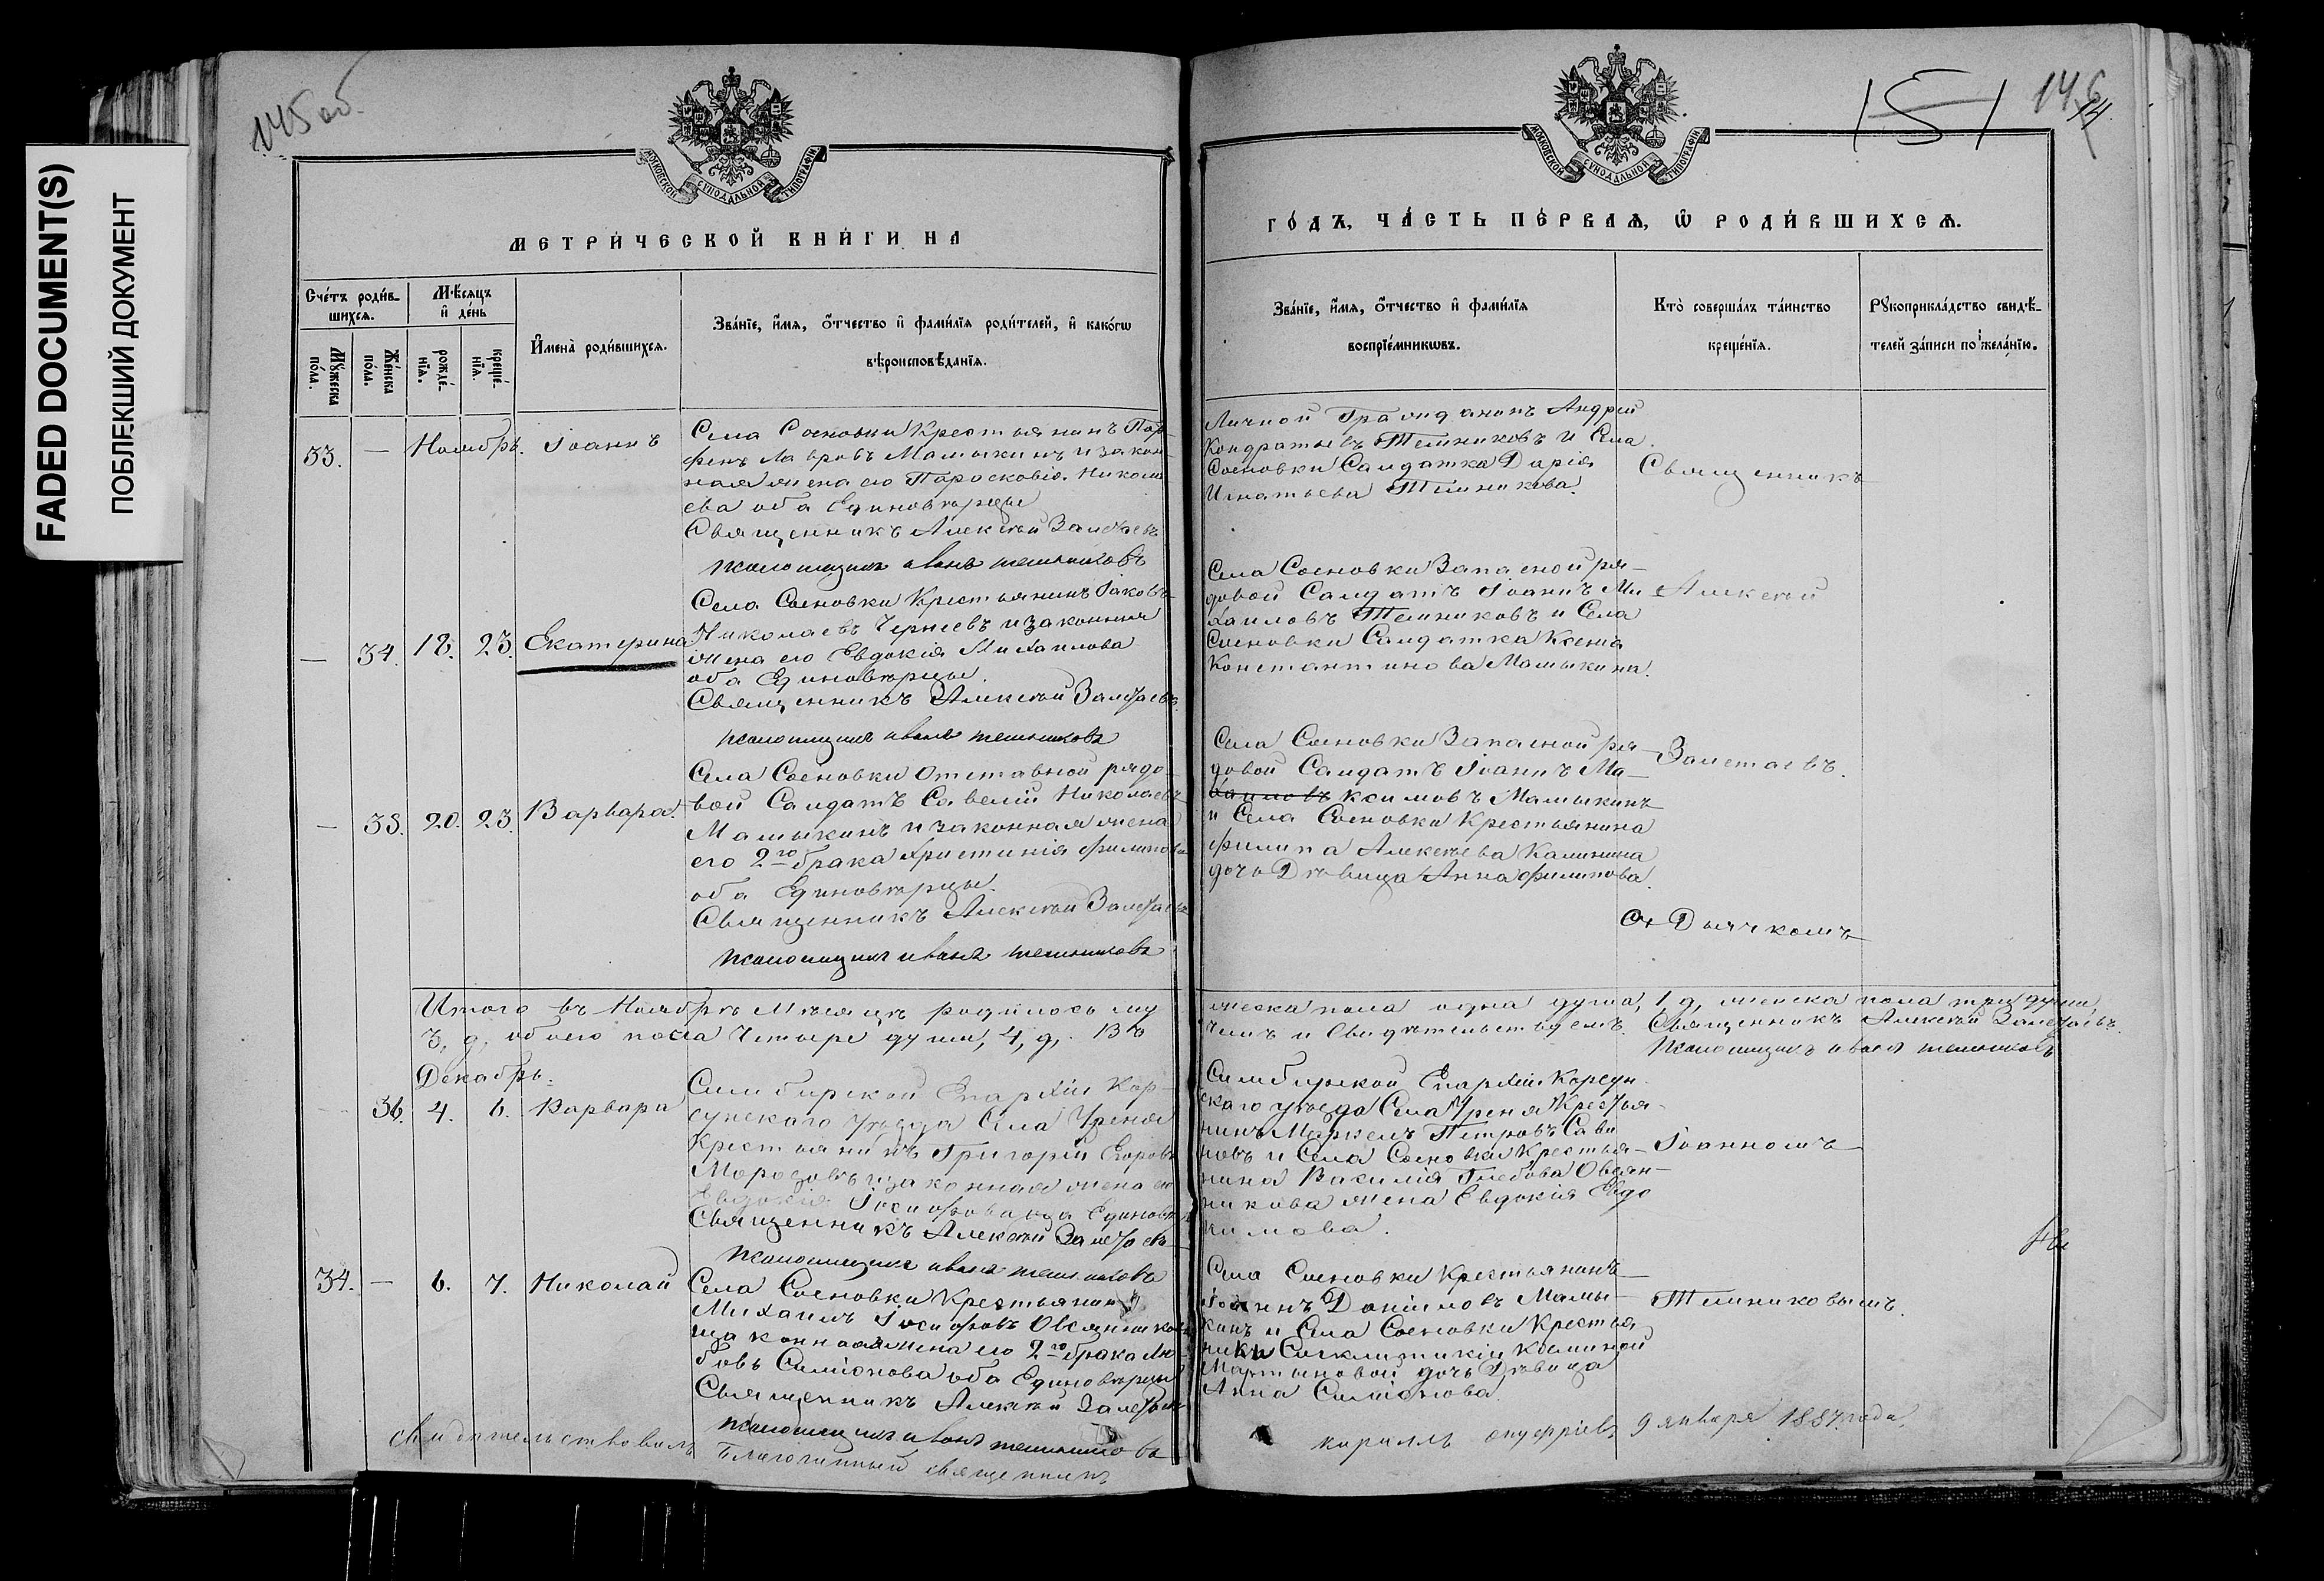 FADED DOCUMENT(S)
ПОБЛЕКШИЙ ДОКУМЕНТ
145 об.
МОСКОВСКОЙ СѴНОДАЛЬНОЙ ТИПОГРАФІИ
МЕТРИ́ЧЕСКОЙ КНИ́ГИ НА
Сче́тъ роди́в-
шихсѧ.
Мѣ́сѧцъ
и҆ де́нь
Мꙋ́жеска
по́ла.
Же́нска
по́ла.
рожде́-
нїѧ.
креще́-
нїѧ.
И҆мена̀ роди́вшихсѧ.
Зва́нїе, и҆́мѧ, ѻ҆́тчество и҆ фами́лїѧ роди́телей, и҆ како́гѡ
вѣроисповѣ́данїѧ.
33. — Ноябрь. Іоаннъ
Села Сосновки Крестьянинъ Пар-
фенъ Лавровъ Мамыкинъ и закон-
ная жена его Парасковія Никола
ева оба Единовѣрцы
Священникъ Алексѣй Залетаевъ
псаломщикъ иванъ темниковъ
— 34. 18. 23. Екатерина
Села Сосновки Крестьянинъ Іаковъ
Николаевъ Чернеевъ и законная
жена его Евдокія Михаилова
оба Единовѣрцы.
Священникъ Алексѣй Залетаевъ.
псаломщикъ иванъ темниковъ
— 35. 20. 23. Варвара.
Села Сосновки Отставной рядо-
вой Салдатъ Савелій Николаевъ
Мамыкинъ и законная жена
его 2го брака Христинія Филипова
оба Единовѣрцы.
Священникъ Алексѣй Залетаевъ
псаломщикъ иванъ темниковъ
Итого въ Ноябрѣ Мѣсяцѣ родилось му
3, д, обоего пола Четыре души, 4, д, Въ
Декабрь.
36. 4. 6. Варвара
Симбирской Епархіи Кор-
сунскаго Уѣзда Села Уреня
Крестьянинъ Григорій Егоровъ
Морозовъ и законная жена его
Евдокія Іосифова оба Единовѣ
Священникъ Алексѣй Залетаевъ
псаломщикъ иванъ темниковъ
34. — 6. 7. Николай
Села Сосновки Крестьянин
Михаилъ Іосифовъ Овсянников
и законная жена его 2го брака Лю
бовь Симіонова оба Единовѣрцы
Священникъ Алексѣй Залетаевъ
псаломщикъ иванъ темниковъ
свидѣтельствовалъ Благочинный священникъ
151
146
МОСКОВСКОЙ СѴНОДАЛЬНОЙ ТИПОГРАФІИ
ГО́ДЪ, ЧА́СТЬ ПЕ́РВАѦ, Ѡ҆ РОДИ́ВШИХСѦ.
Зва́нїе, и҆́мѧ, ѻ҆́тчество и҆ фами́лїѧ
воспрїе́мникѡвъ.
Кто̀ соверша́лъ та́инство
креще́нїѧ.
Рꙋкоприкла́дство свидѣ́-
телей за́писи по жела́нїю.
Личной Гражданинъ Андрей
Кондратьевъ Темниковъ и Села
Сосновки Салдатка Дарія
Игнатьева Темникова.
Священникъ
Села Сосновки Запасной ря-
довой Салдатъ Іоаннъ Ми
хаиловъ Темниковъ и Села
Сосновки Салдатка Ксенія
Константинова Мамыкина.
Алексѣй
Села Сосновки Запасной ря-
довой Салдатъ Іоаннъ Ма-
хаиловъ ксимовъ Мамыкинъ
и Села Сосновки Крестьянина
Филипа Алексѣева Калинина
дочь Дѣвица Анна Филипова.
Залетаевъ.
Съ Дьячкомъ
жеска пола одна душа, 1 д, женска пола три души
чемъ и Свидѣтельствуемъ. Священникъ Алексѣй Залетаевъ.
псаломщикъ иванъ темниковъ
Симбирской Епархіи Корсун-
скаго уѣзда Села Уреня Крестья-
нинъ Маркелъ Петровъ Сави
новъ и Села Сосновки Крестья-
нина Василія Глебова Овсян-
никова жена Евдокія Евдо
кимова.
Іоанномъ
Села Сосновки Крестьянинъ
Іоаннъ Даніиловъ Мамы-
кинъ и Села Сосновки Крестья
Мартыновой дочь Дѣвица
Анна Симіонова.
Темниковымъ.
кириллъ онуфріевъ 9 января 1887 года.